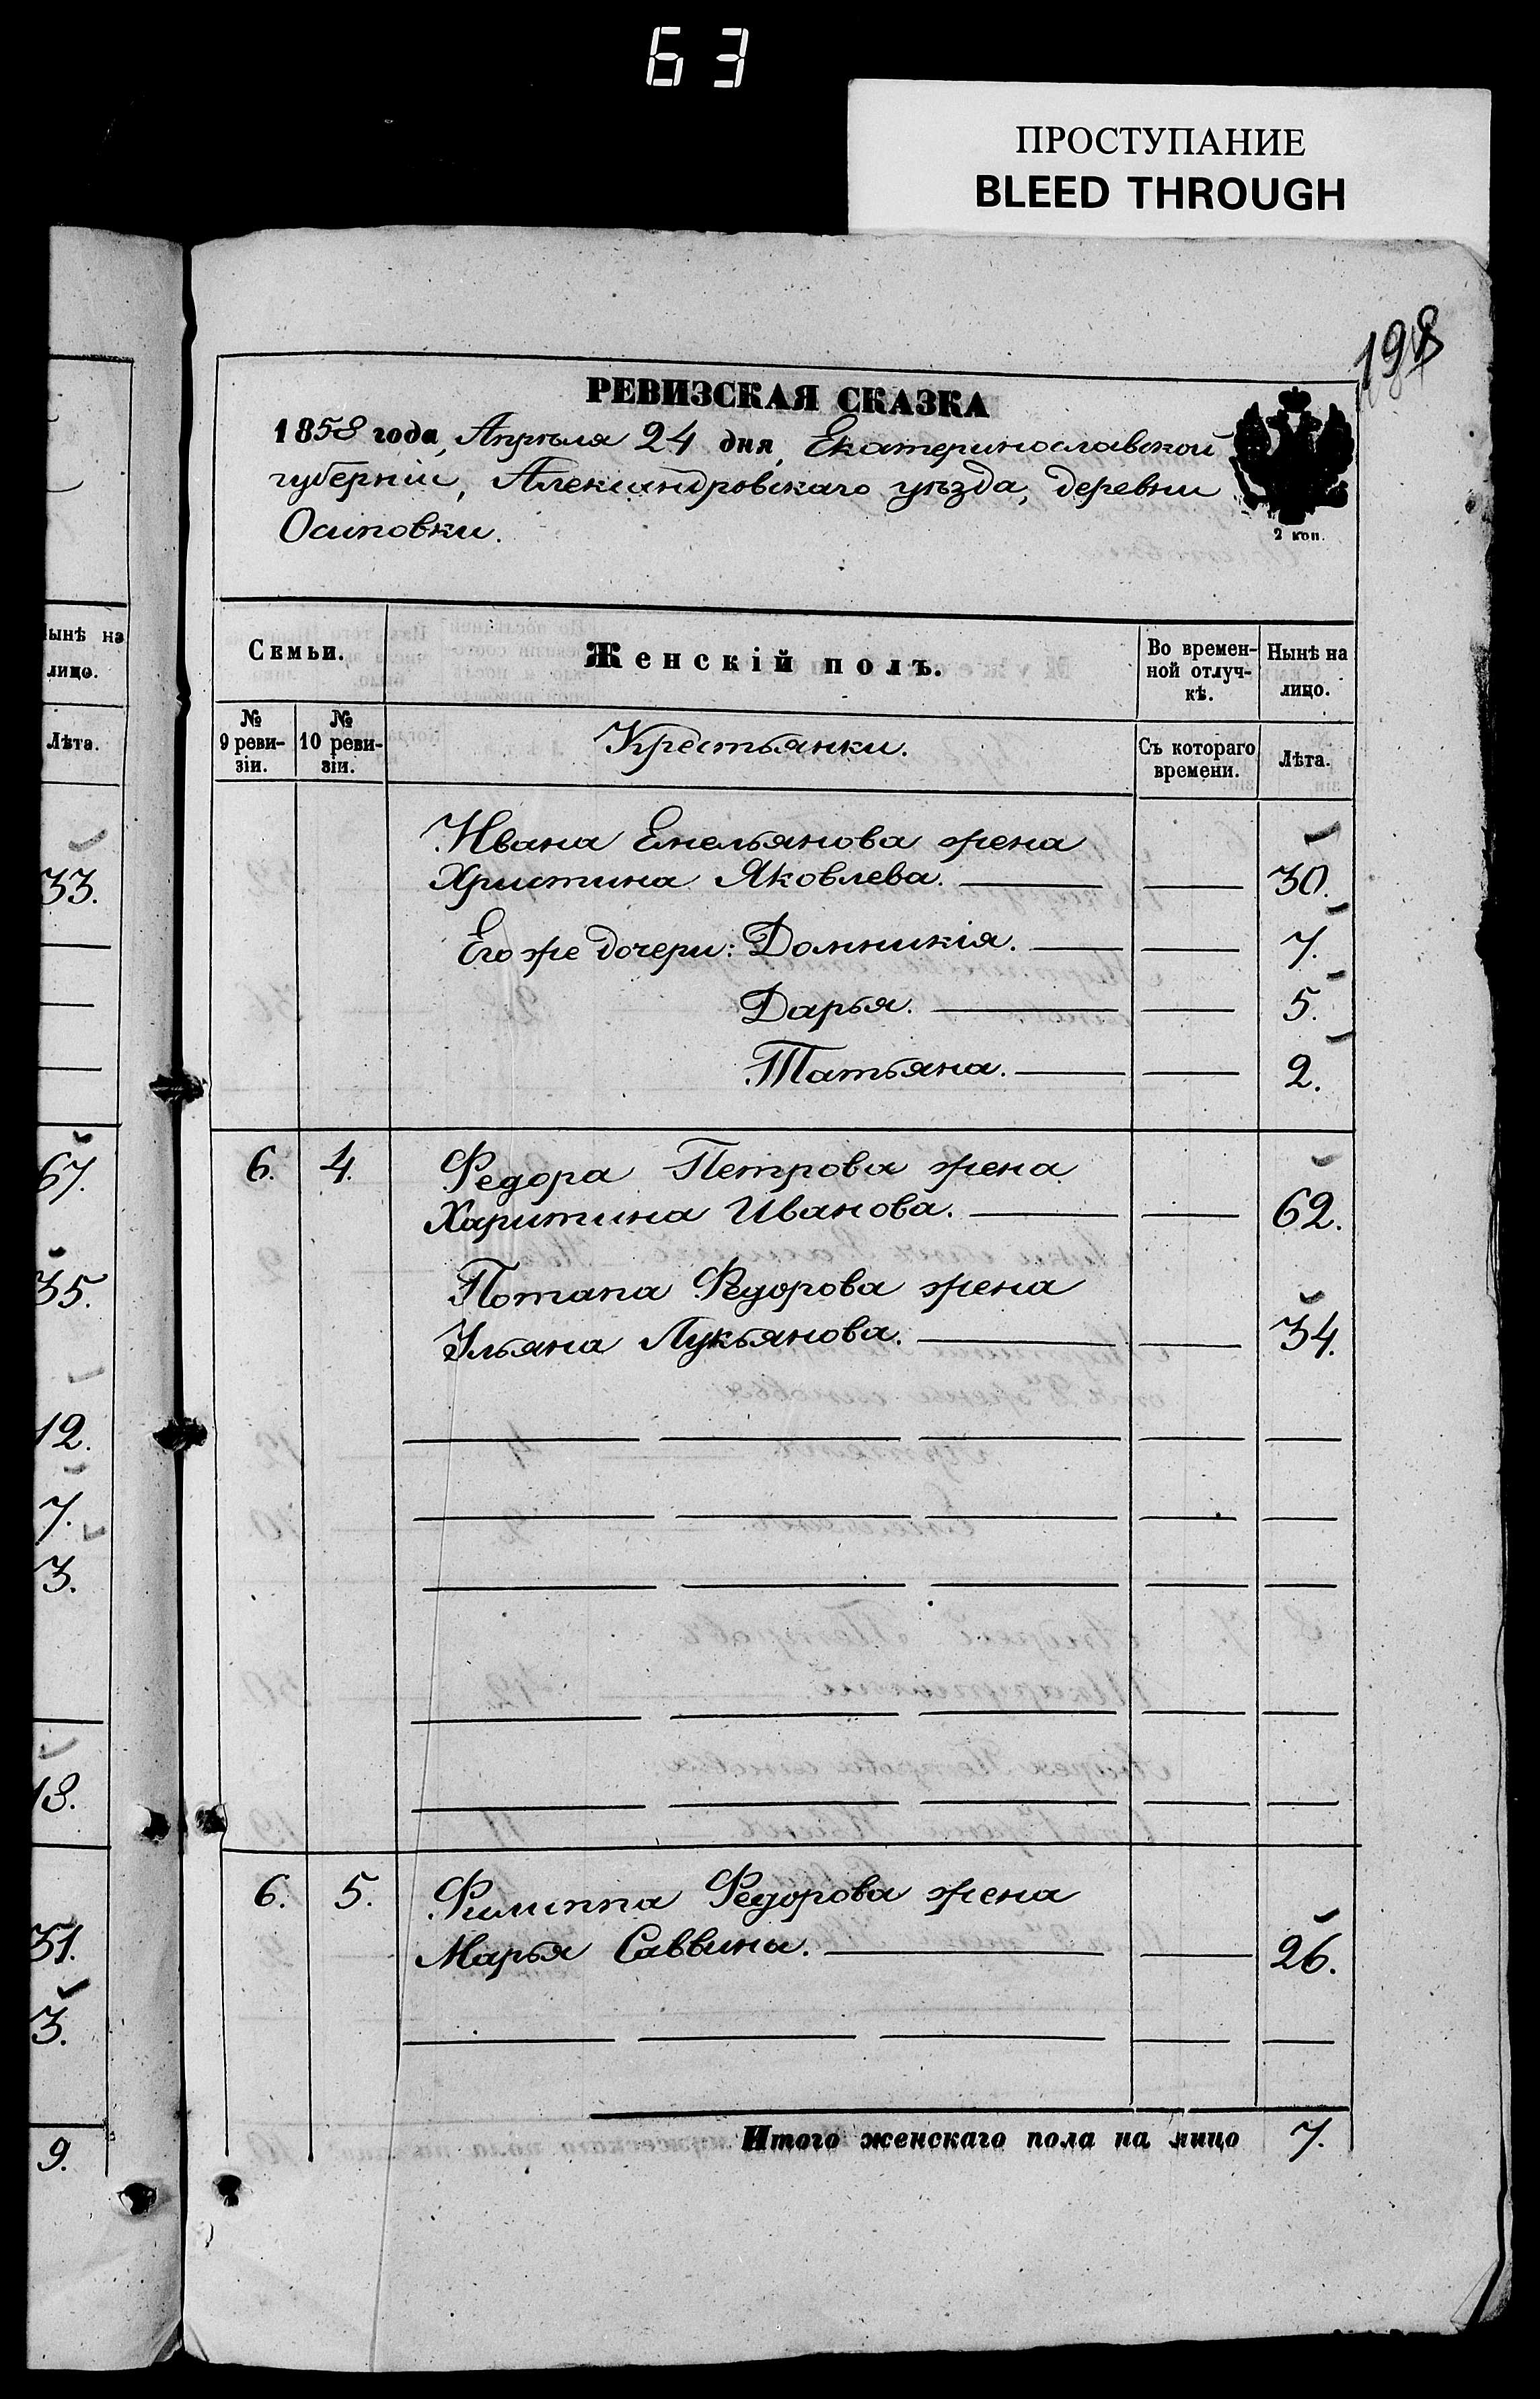 63
ПРОСТУПАНИЕ
BLEED THROUGH
198
РЕВИЗСКАЯ СКАЗКА
1858 года, Апрѣля 24 дня, Екатеринославской
губерніи, Александровскаго уѣзда, деревни
Осиповки.
2 коп.
ынѣ на
лицо.
Лѣта.
33.
67.
35.
12.
7.
3.
18.
31.
3.
9.
Семьи.
Женскій полъ.
Во времен-
ной отлуч-
кѣ.
Нынѣ на
лицо.
№
9 реви-
зіи.
№
10 реви-
зіи.
Крестьянки.
Съ котораго
времени.
Лѣта.
Ивана Емельянова жена
Христина Яковлева. 30.
Его же дочери: Домникія. 7.
Дарья. 5.
Татьяна. 2.
6. 4. Федора Петрова жена
Харитина Иванова. 62.
Потапа Федорова жена
Ульяна Лукьянова. 34.
6. 5. Филиппа Федорова жена
Марья Саввина. 26.
Итого женскаго пола на лицо 7.